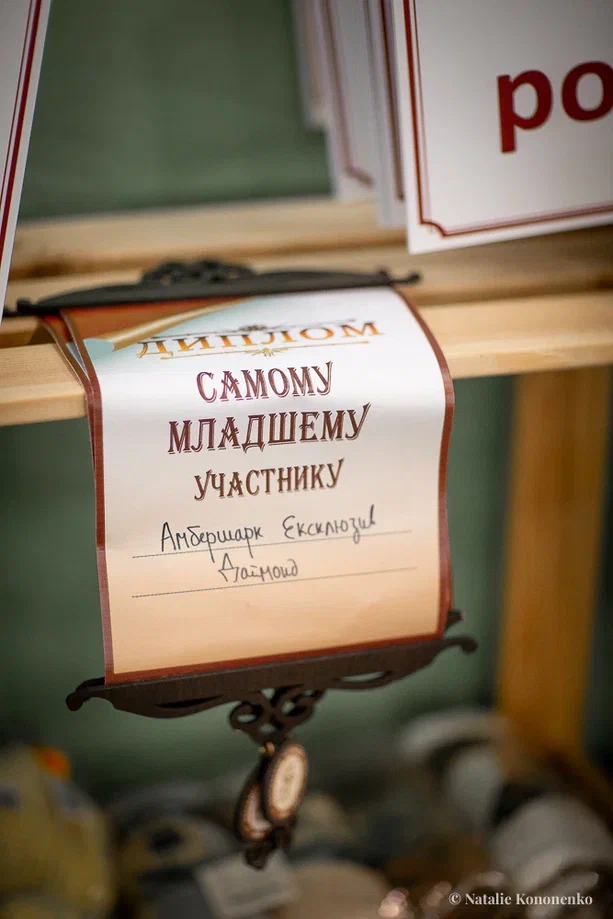 ро
ДИПЛОМ
САМОМУ
МЛАДШЕМУ
УЧАСТНИКУ
Амбершарк Ексклюзив
Даймонд
© Natalie Kononenko